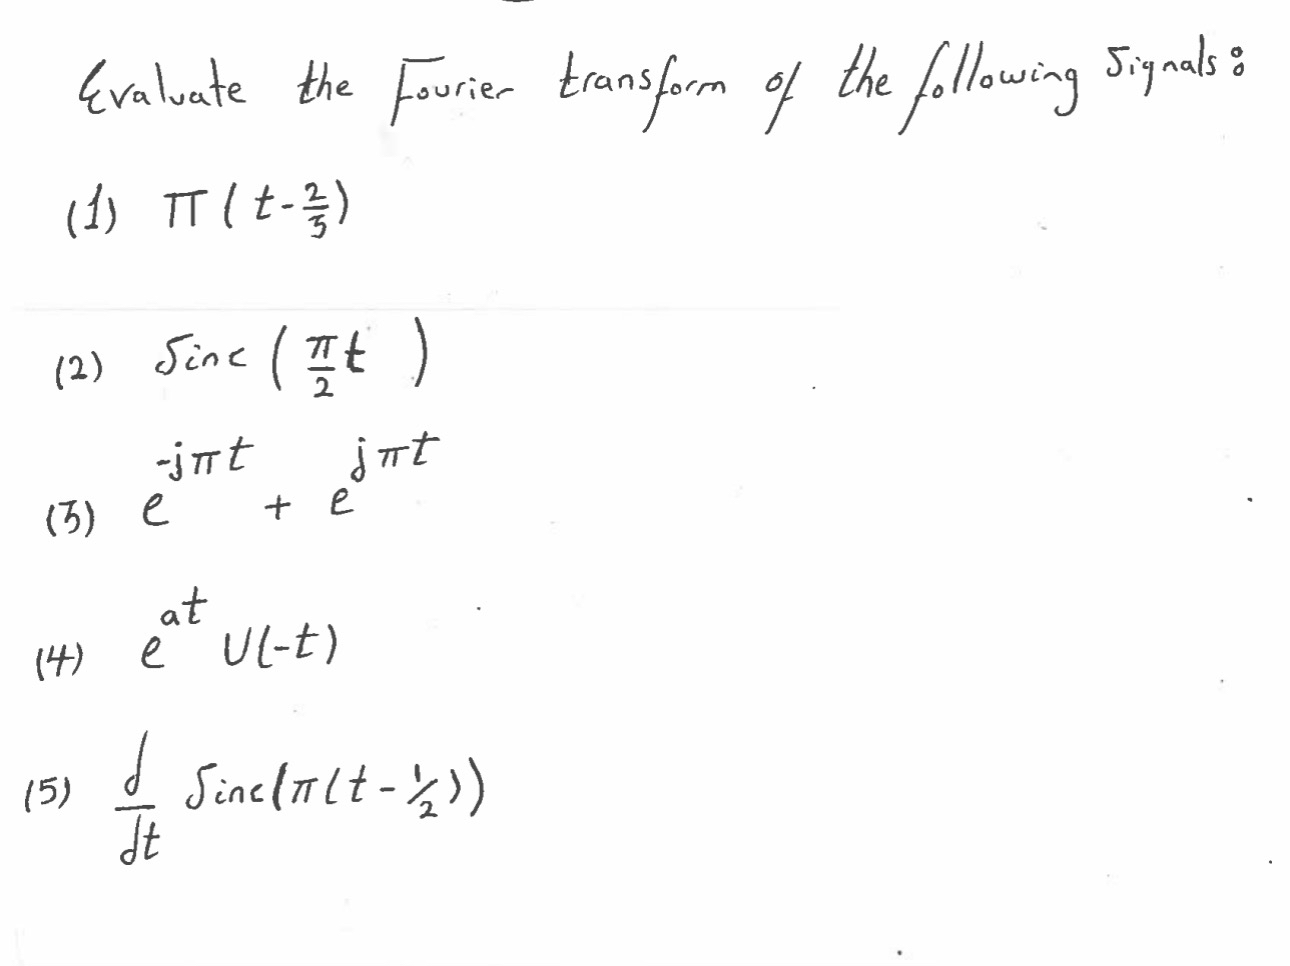 Evaluate the Fourier transform of the following Signals:
(1) π(t-2/3)
(2) Sinc(π/2 t)
(3) e^{-jπt} + e^{jπt}
(4) e^{at} U(-t)
(5) d/dt Sinc(π(t-1/2))